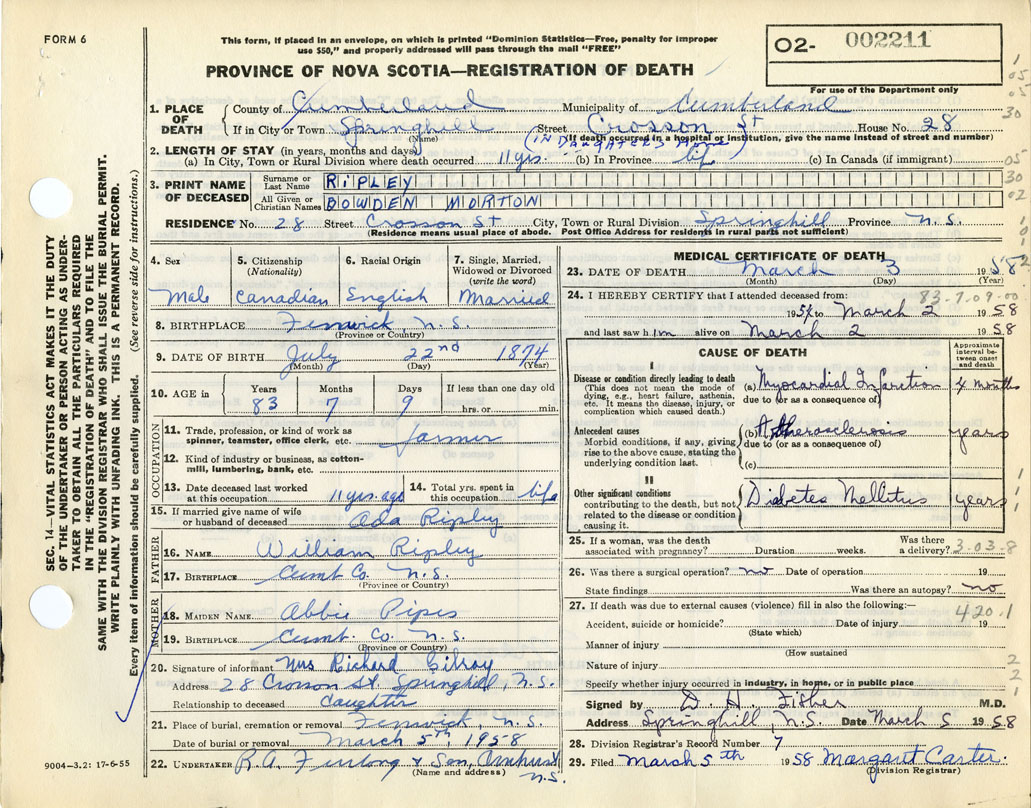 FORM 6
This form, if placed in an envelope, on which is printed "Dominion Statistics—Free, penalty for improper
use $50," and properly addressed will pass through the mail "FREE"
PROVINCE OF NOVA SCOTIA—REGISTRATION OF DEATH
02- 002211
For use of the Department only
1. PLACE OF DEATH County of Cumberland Municipality of Cumberland
If in City or Town Springhill Street Crosson St House No. 28
(Name) (If death occurred in a hospital or institution, give the name instead of street and number)
(IN DAUGHTER'S HOME)
2. LENGTH OF STAY (in years, months and days)
(a) In City, Town or Rural Division where death occurred 11 yrs. (b) In Province life (c) In Canada (if immigrant)
3. PRINT NAME OF DECEASED
Surname or Last Name RIPLEY
All Given or Christian Names BOWDEN MORTON
RESIDENCE No. 28 Street Crosson St City, Town or Rural Division Springhill Province N.S.
(Residence means usual place of abode. Post Office Address for residents in rural parts not sufficient)
4. Sex Male
5. Citizenship (Nationality) Canadian
6. Racial Origin English
7. Single, Married, Widowed or Divorced (write the word) Married
8. BIRTHPLACE Fenwick N.S.
(Province or Country)
9. DATE OF BIRTH July 22nd 1874
(Month) (Day) (Year)
10. AGE in Years 83 Months 7 Days 9 If less than one day old hrs. or min.
OCCUPATION
11. Trade, profession, or kind of work as spinner, teamster, office clerk, etc. farmer
12. Kind of industry or business, as cotton-mill, lumbering, bank, etc.
13. Date deceased last worked at this occupation 11 yrs. ago 14. Total yrs. spent in this occupation life
15. If married give name of wife or husband of deceased Ada Ripley
FATHER
16. NAME William Ripley
17. BIRTHPLACE Cumb Co. N.S.
(Province or Country)
MOTHER
18. MAIDEN NAME Abbie Pipes
19. BIRTHPLACE Cumb. Co. N.S.
(Province or Country)
20. Signature of informant Mrs Richard Gilroy
Address 28 Crosson St. Springhill, N.S.
Relationship to deceased daughter
21. Place of burial, cremation or removal Fenwick, N.S.
Date of burial or removal March 5th, 1958
22. UNDERTAKER R.A. Furlong & Son, Amherst N.S.
(Name and address)
MEDICAL CERTIFICATE OF DEATH
23. DATE OF DEATH March 3 1958
(Month) (Day) (Year)
83.7.09.00
24. I HEREBY CERTIFY that I attended deceased from:
to March 2 1958
and last saw him alive on March 2 1958
CAUSE OF DEATH
Approximate interval between onset and death
I
Disease or condition directly leading to death
(This does not mean the mode of dying, e.g., heart failure, asthenia, etc. It means the disease, injury, or complication which caused death.)
(a) Myocardial Infarction 4 months
due to (or as a consequence of)
Antecedent causes
Morbid conditions, if any, giving rise to the above cause, stating the underlying condition last.
(b) Atherosclerosis years
due to (or as a consequence of)
(c)
II
Other significant conditions
contributing to the death, but not related to the disease or condition causing it.
Diabetes Mellitus years
25. If a woman, was the death associated with pregnancy? Duration weeks. Was there a delivery?
3-03-8
26. Was there a surgical operation? no Date of operation 19
State findings Was there an autopsy? no
27. If death was due to external causes (violence) fill in also the following:—
420.1
Accident, suicide or homicide? Date of injury 19
(State which)
Manner of injury
(How sustained
Nature of injury
Specify whether injury occurred in industry, in home, or in public place
Signed by D. H. Fisher M.D.
Address Springhill, N.S. Date March 5 1958
28. Division Registrar's Record Number 7
29. Filed March 5th 1958 Margaret Carter
(Division Registrar)
SEC. 14—VITAL STATISTICS ACT MAKES IT THE DUTY
OF THE UNDERTAKER OR PERSON ACTING AS UNDER-
TAKER TO OBTAIN ALL THE PARTICULARS REQUIRED
IN THE "REGISTRATION OF DEATH" AND TO FILE THE
SAME WITH THE DIVISION REGISTRAR WHO SHALL ISSUE THE BURIAL PERMIT.
WRITE PLAINLY WITH UNFADING INK. THIS IS A PERMANENT RECORD.
Every item of information should be carefully supplied. (See reverse side for instructions.)
9004—3.2: 17-6-55